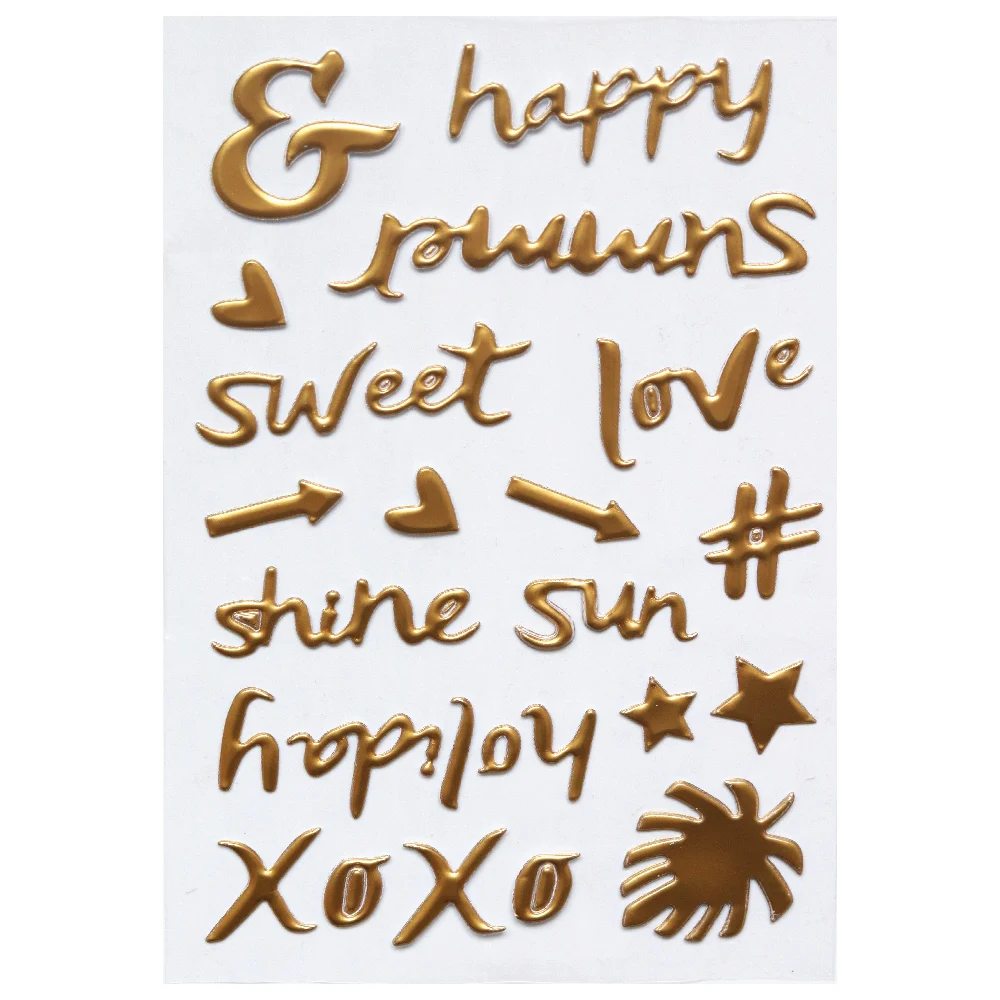 & happy
summer
sweet love
#
shine sun
holiday
xoxo